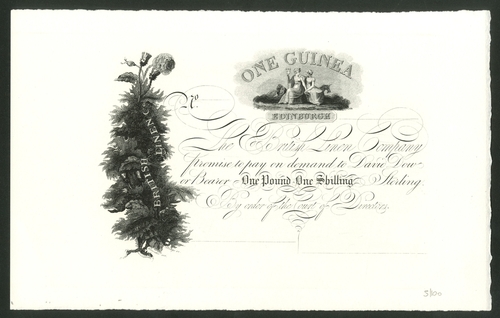 ONE GUINEA
EDINBURGH
No.
The British Linen Company
promise to pay on demand to David Dow
or Bearer One Pound One Shilling Sterling
By order of the Court of Directors
BRITISH LINEN CO